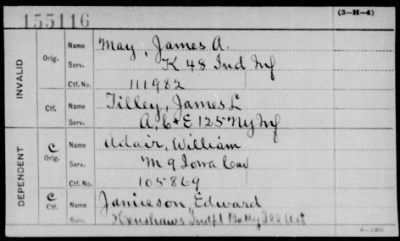 155116
(3-H-4)
INVALID
Orig.
Name May, James A.
Serv. K 48 Ind Inf
Ctf. No. 111982
Ctf.
Name Tilley, James L
Serv. A, C & E 125 NY Inf
DEPENDENT
C Orig.
Name Adair, William
Serv. M 9 Iowa Cav
Ctf. No. 105869
C Ctf.
Name Jamieson Edward
Serv. Henshaws Indpt Batty Ill Art